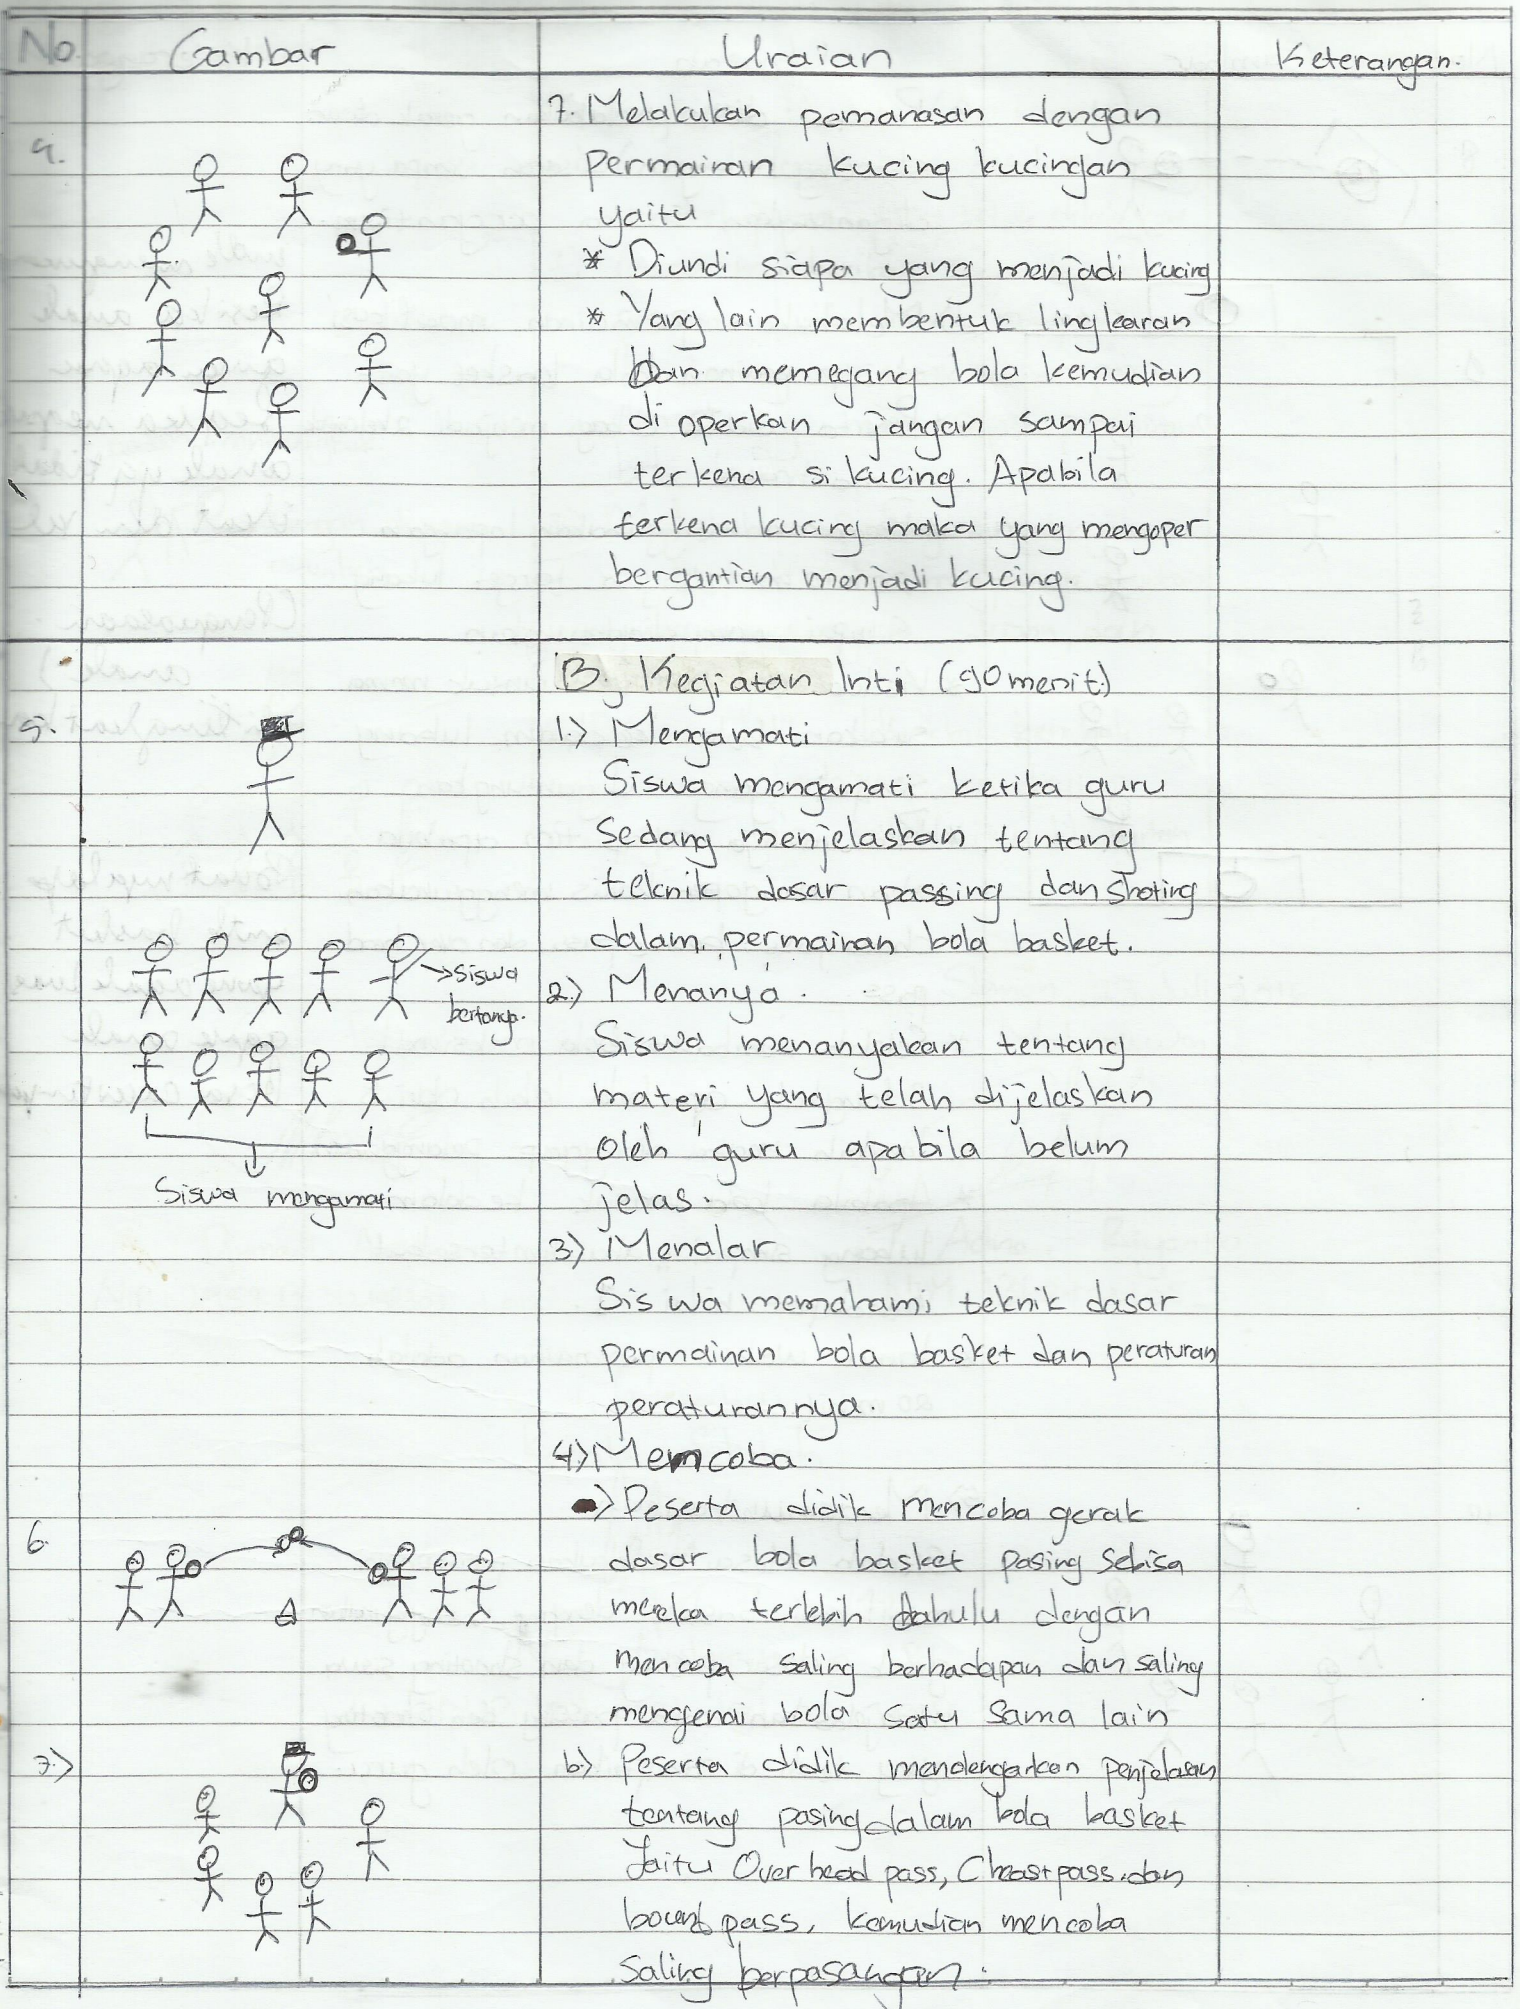 No. Gambar Uraian Keterangan.
7. Melakukan pemanasan dengan
4.
permainan kucing kucingan
yaitu
* Diundi siapa yang menjadi kucing
* Yang lain membentuk lingkaran
Dan memegang bola kemudian
di operkan jangan sampai
terkena si kucing. Apabila
terkena kucing maka yang mengoper
bergantian menjadi kucing.
B. Kegiatan Inti (90 menit)
5.
1.) Mengamati
Siswa mengamati ketika guru
Sedang menjelaskan tentang
teknik dasar passing dan shoting
dalam permainan bola basket.
→ Siswa
bertanya.
2.) Menanya.
Siswa menanyakan tentang
materi yang telah dijelaskan
Oleh guru apabila belum
jelas.
Siswa mengamati
3) Menalar
Sis wa memahami teknik dasar
permainan bola basket dan peraturan
peraturannya.
4.) Memcoba.
6.
→) Peserta didik mencoba gerak
dasar bola basket pasing sebisa
mereka terlebih dahulu dengan
mencoba saling berhadapan dan saling
mengenai bola satu sama lain
7.)
b.) Peserta didik mendengarkan penjelasan
tentang pasing dalam bola basket
Yaitu Over head pass, Cheast pass. dan
pass, kemudian mencoba
saling berpasangan.